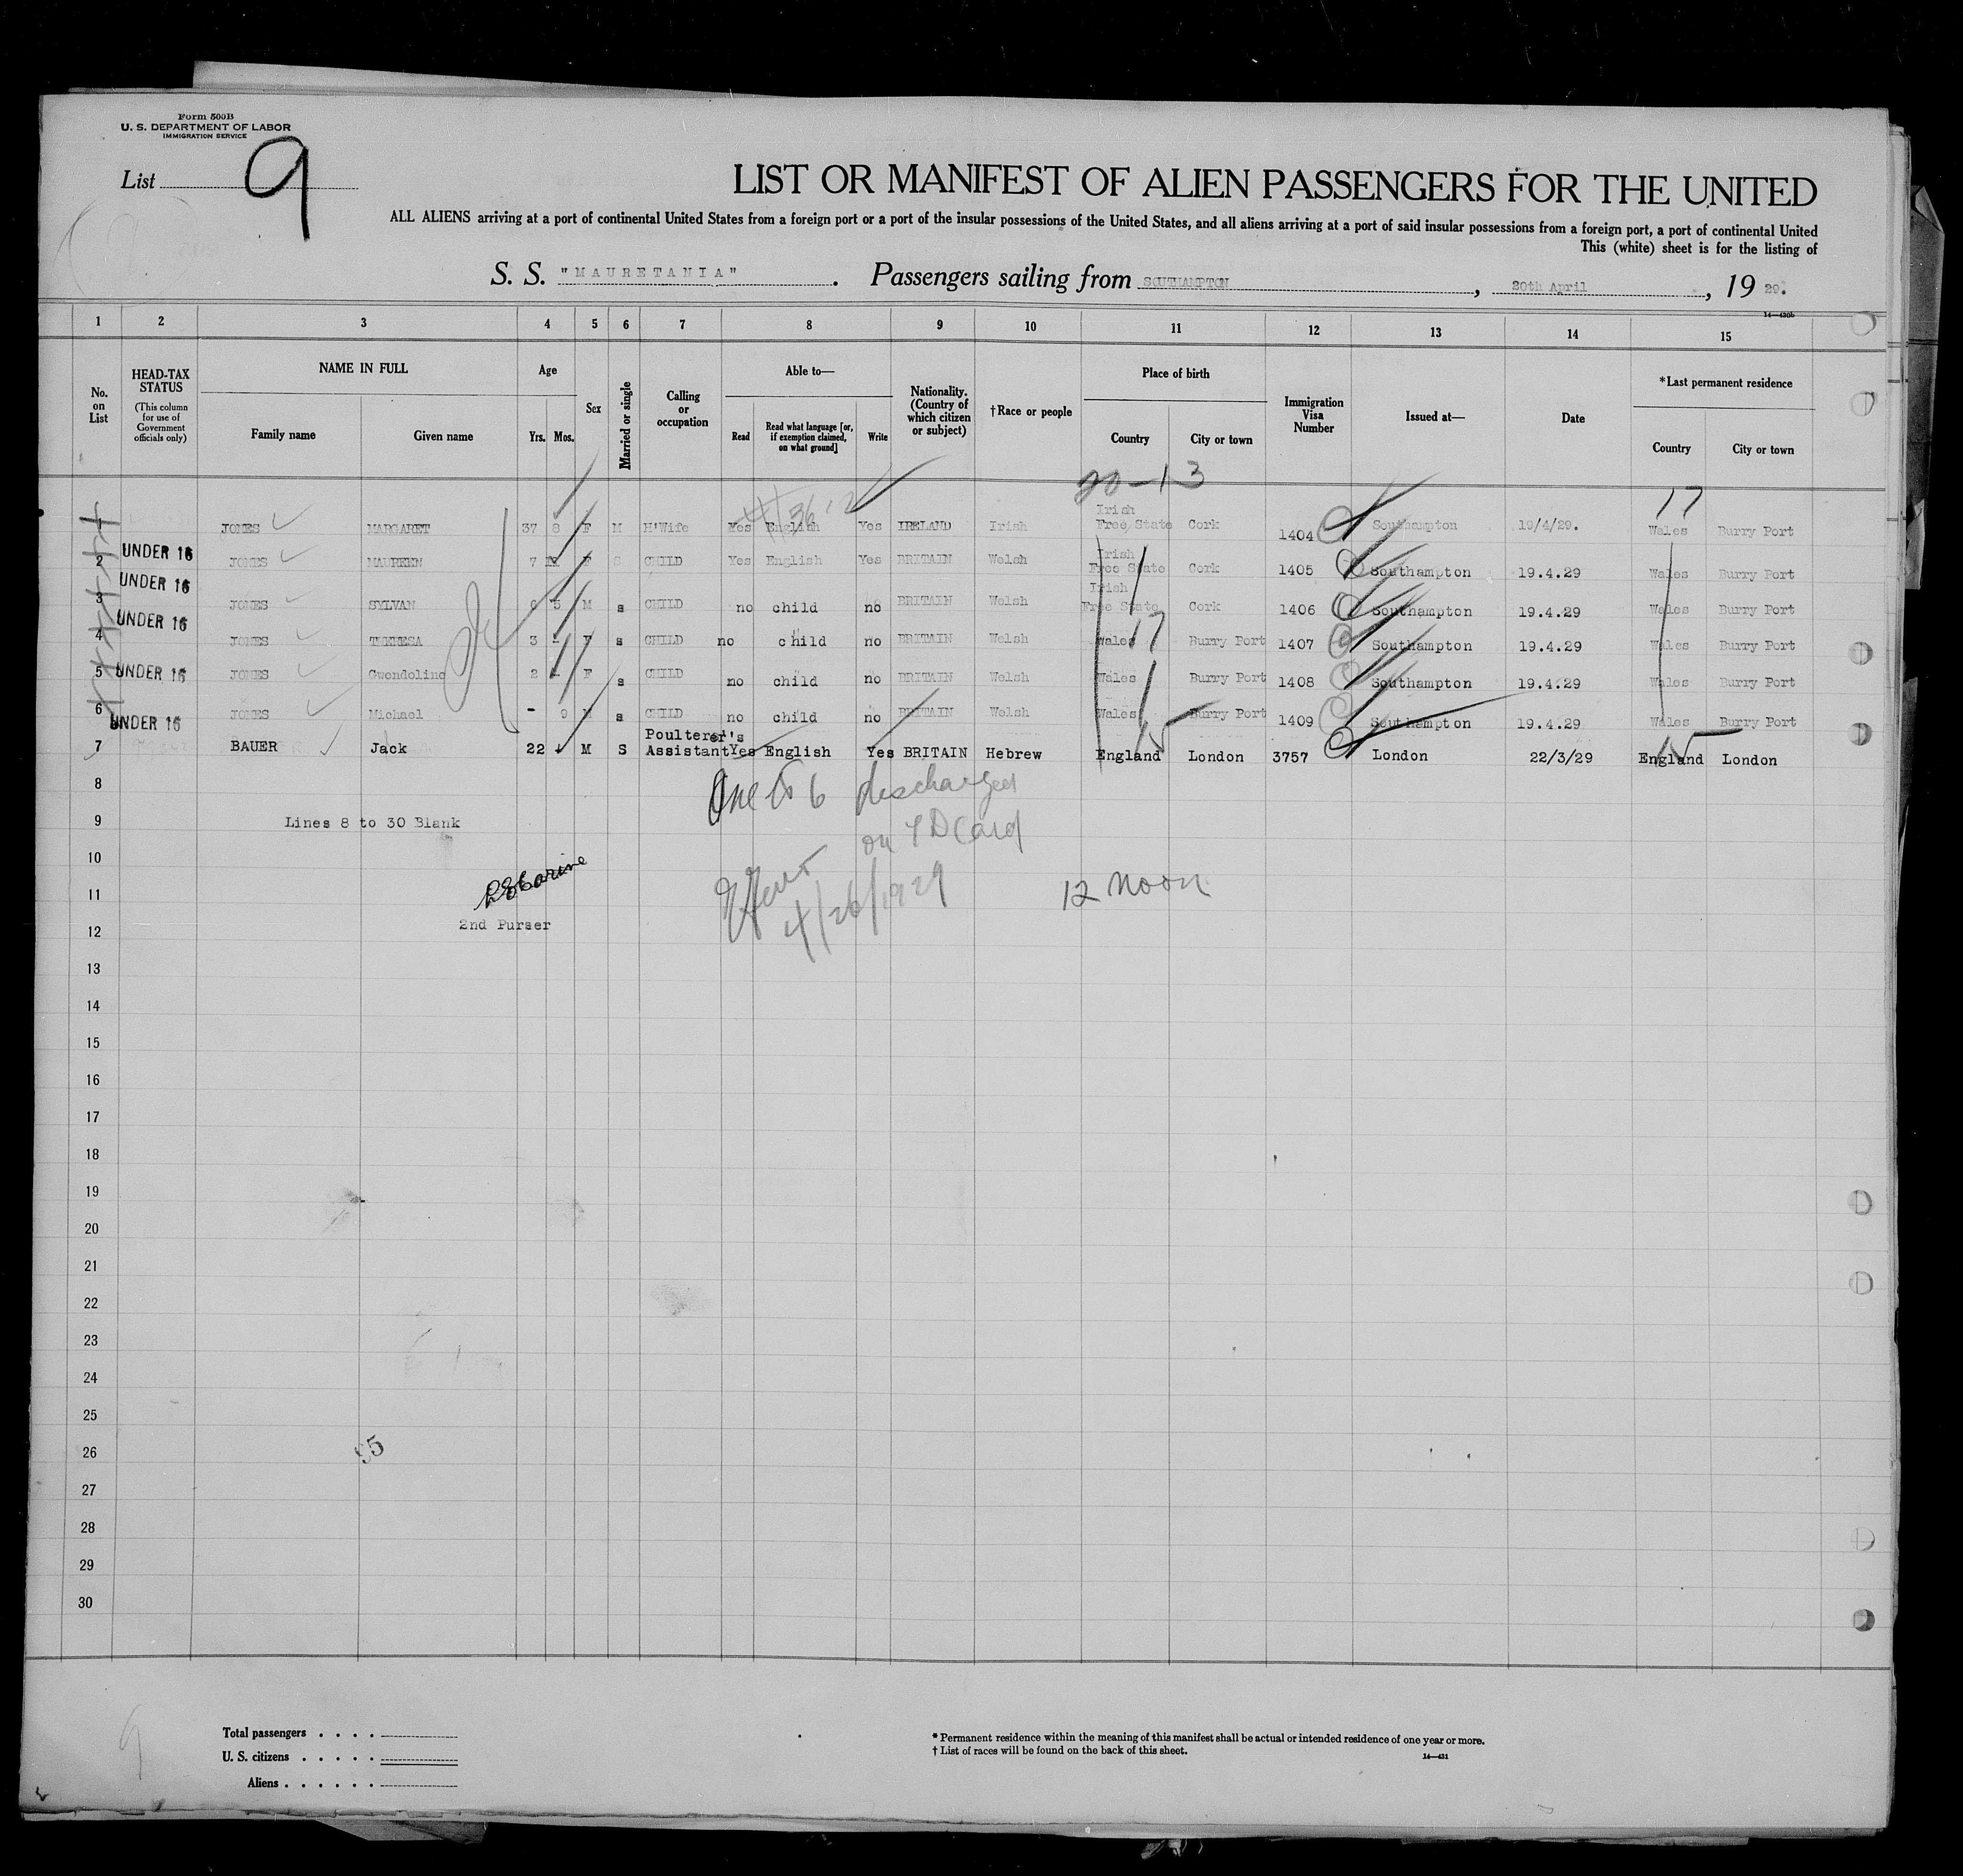 Form 500B
U. S. DEPARTMENT OF LABOR
IMMIGRATION SERVICE
List 9
LIST OR MANIFEST OF ALIEN PASSENGERS FOR THE UNITED
ALL ALIENS arriving at a port of continental United States from a foreign port or a port of the insular possessions of the United States, and all aliens arriving at a port of said insular possessions from a foreign port, a port of continental United
This (white) sheet is for the listing of
S. S. "MAURETANIA". Passengers sailing from SOUTHAMPTON, 20th April, 19 29.
14—430b
1 2 3 4 5 6 7 8 9 10 11 12 13 14 15
No. on List
HEAD-TAX STATUS
(This column for use of Government officials only)
NAME IN FULL
Family name Given name
Age
Yrs. Mos.
Sex
Married or single
Calling or occupation
Able to—
Read
Read what language [or, if exemption claimed, on what ground]
Write
Nationality. (Country of which citizen or subject)
†Race or people
Place of birth
Country City or town
Immigration Visa Number
Issued at—
Date
*Last permanent residence
Country City or town
20-13 17
JONES MARGARET 37 8 F M H'Wife Yes English Yes IRELAND Irish Irish Free State Cork 1404 Southampton 19/4/29. Wales Burry Port
UNDER 16
2 JONES MAUREEN 7 F S CHILD Yes English Yes BRITAIN Welsh Irish Free State Cork 1405 Southampton 19.4.29 Wales Burry Port
UNDER 16
3 JONES SYLVAN 5 M s CHILD no child no BRITAIN Welsh Irish Free State Cork 1406 Southampton 19.4.29 Wales Burry Port
UNDER 16
4 JONES THERESA 3 - F s CHILD no child no BRITAIN Welsh Wales 17 Burry Port 1407 Southampton 19.4.29 Wales Burry Port
5 UNDER 16 JONES Gwendoline 2 - F s CHILD no child no BRITAIN Welsh Wales Burry Port 1408 Southampton 19.4.29 Wales Burry Port
6 UNDER 16 JONES Michael - 9 M s CHILD no child no BRITAIN Welsh Wales Burry Port 1409 Southampton 19.4.29 Wales Burry Port
7 BAUER Jack 22 M S Poulterer's Assistant Yes English Yes BRITAIN Hebrew England London 3757 London 22/3/29 England London
8 One to 6 discharged
9 Lines 8 to 30 Blank on Card
10
11 4/26/1929 12 Noon
12 2nd Purser
13
14
15
16
17
18
19
20
21
22
23
24
25
26
27
28
29
30
Total passengers . . . .
U. S. citizens . . . . .
Aliens . . . . . .
* Permanent residence within the meaning of this manifest shall be actual or intended residence of one year or more.
† List of races will be found on the back of this sheet.
14—431
9